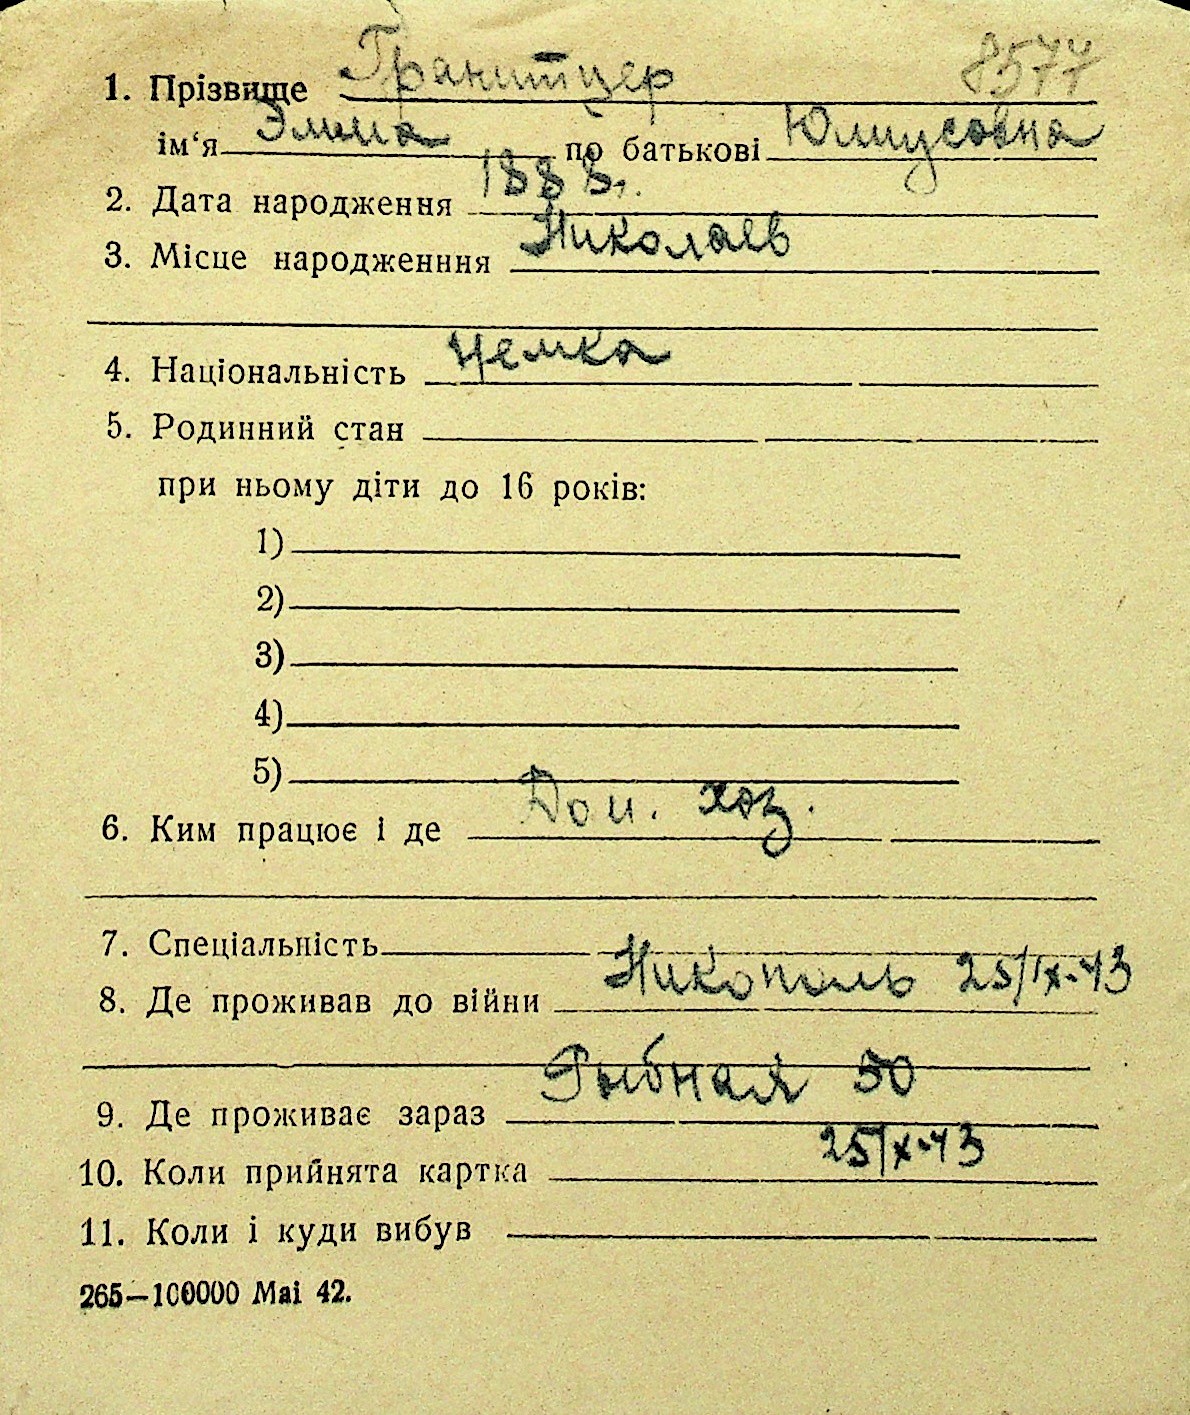 1. Прізвище Гранитцер 8577
ім‘я Эмма по батькові Юлиусовна
2. Дата народження 1888 г.
3. Місце народженння Николаев
4. Національність Немка
5. Родинний стан
при ньому діти до 16 років:
1)
2)
3)
4)
5)
6. Ким працює і де Дом. хоз.
7. Спеціальність
8. Де проживав до війни Никополь 25/IX-43
9. Де проживає зараз Рыбная 50
10. Коли прийнята картка 25/X-43
11. Коли і куди вибув
265—100000 Mai 42.